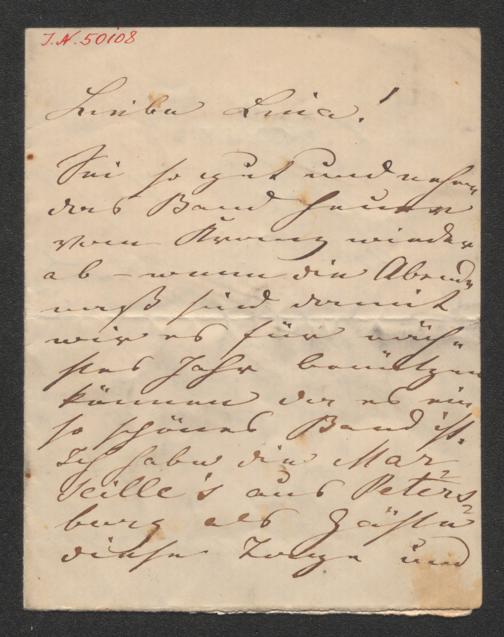 J.N. 50108
Liebe Lina!
Sei so gut und nehme
das Band heuer
vom Kranz wieder
ab – wenn die Abende
naß sind damit
wir es für näch=
stes Jahr benützen
können da es ein
so schönes Band ist.
Ich habe die Mar=
seille's aus Peters=
burg als Gäste
diese Tage und